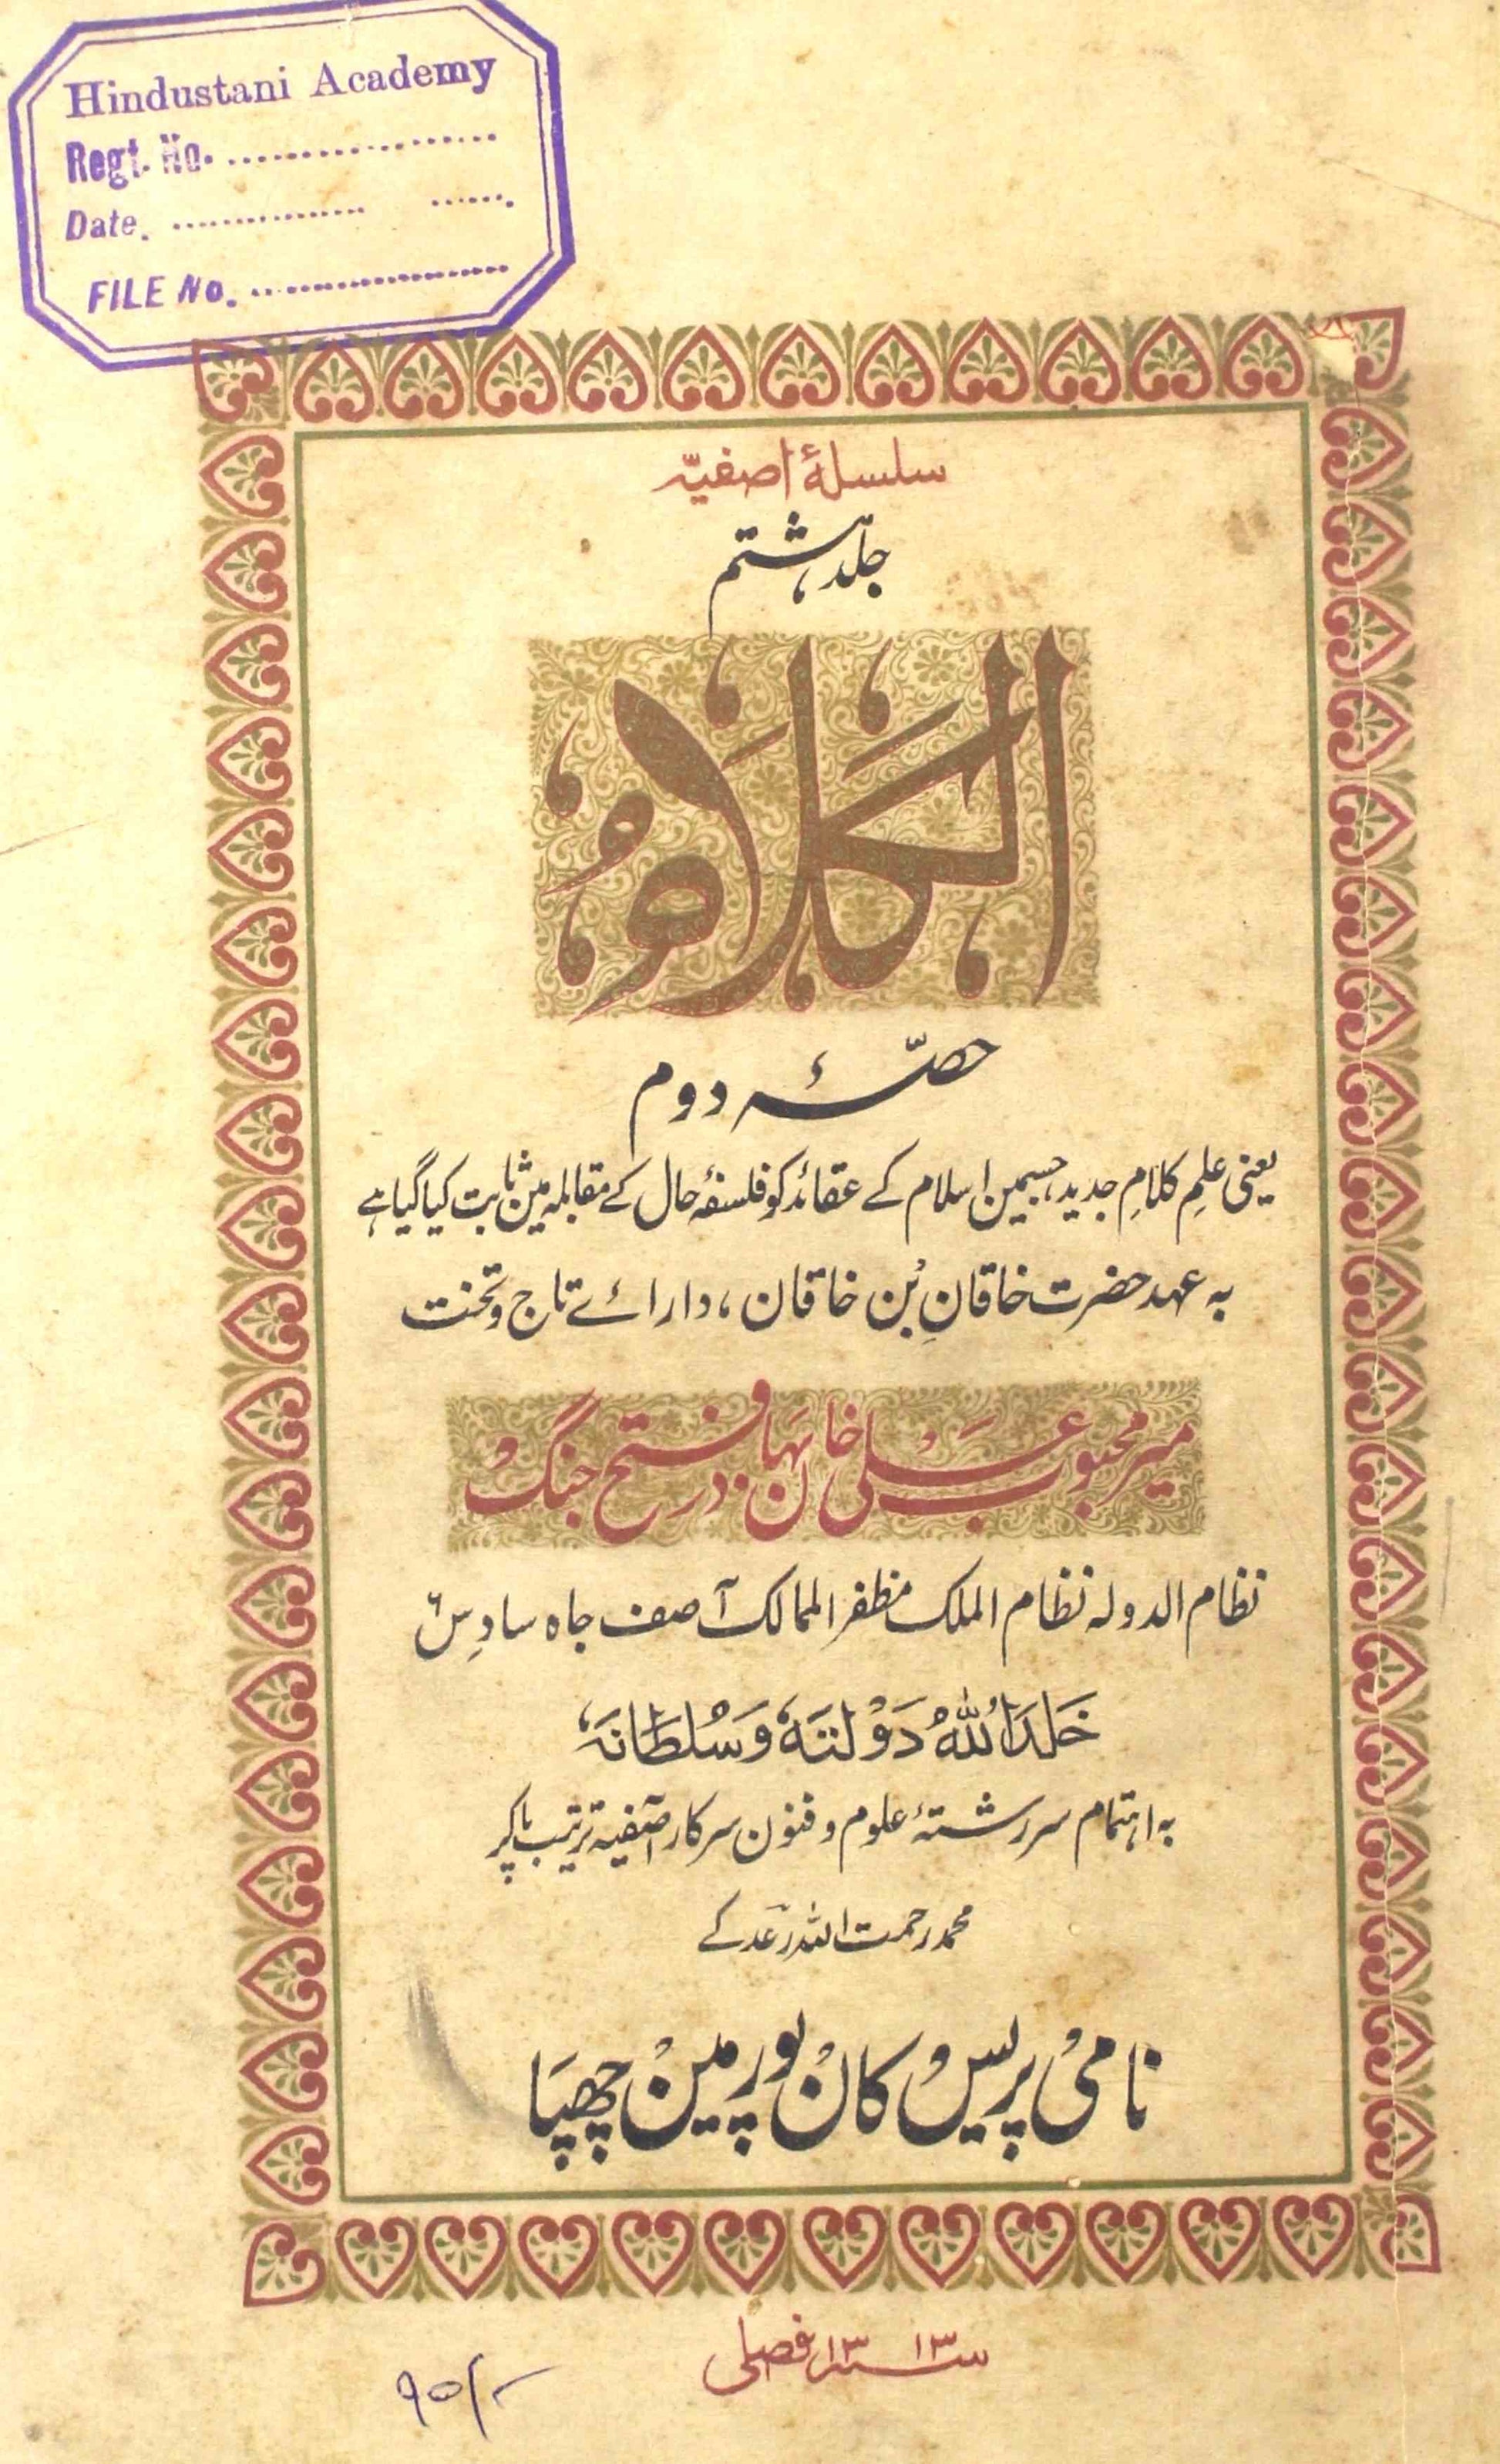 Hindustani Academy
Regt. No. ..................
Date. ............... ......
FILE No. ..................
سلسلۂ آصفیّہ
جلد ہشتم
الکلام
حصّۂ دوم
یعنی علمِ کلامِ جدید، جسمین اسلام کے عقائد کو فلسفۂ حال کے مقابلہ مین ثابت کیا گیا ہے
بہ عہد حضرت خاقانِ بن خاقان، دارائے تاج و تخت
میر محبوب علی خان بہادر فتح جنگ
نظام الدولہ نظام الملک مظفر الممالک آصف جاہ سادس ۶
خَلدَ اللّٰہُ دَوْلتَہٗ وَسُلطَانَہٗ
بہ اہتمام سررشتۂ علوم و فنون سرکار آصفیہ ترتیب پاکر
محمد رحمت اللہ رعد کے
نامی پریس کان پور مین چھپا
سنہ ۱۳۱۳ فصلی